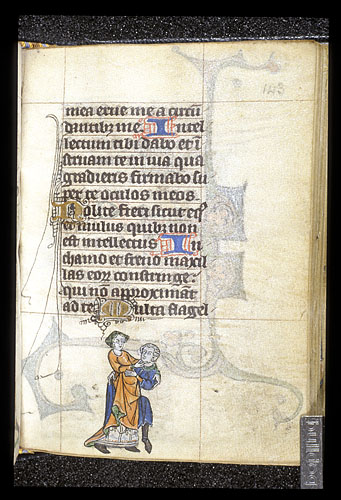 143
mea erue me a circū
dantibꝫ me Intel
lectum tibi dabo et ī
struam te in uia qua
gradieris firmabo su
per te oculos meos.
Nolite fieri sicut eqꝰ
et mulus quibꝫ non
est intellectus In
chamo et freno maxil
las eoꝝ constringe:
qui nō approximat
ad te Multa flagel